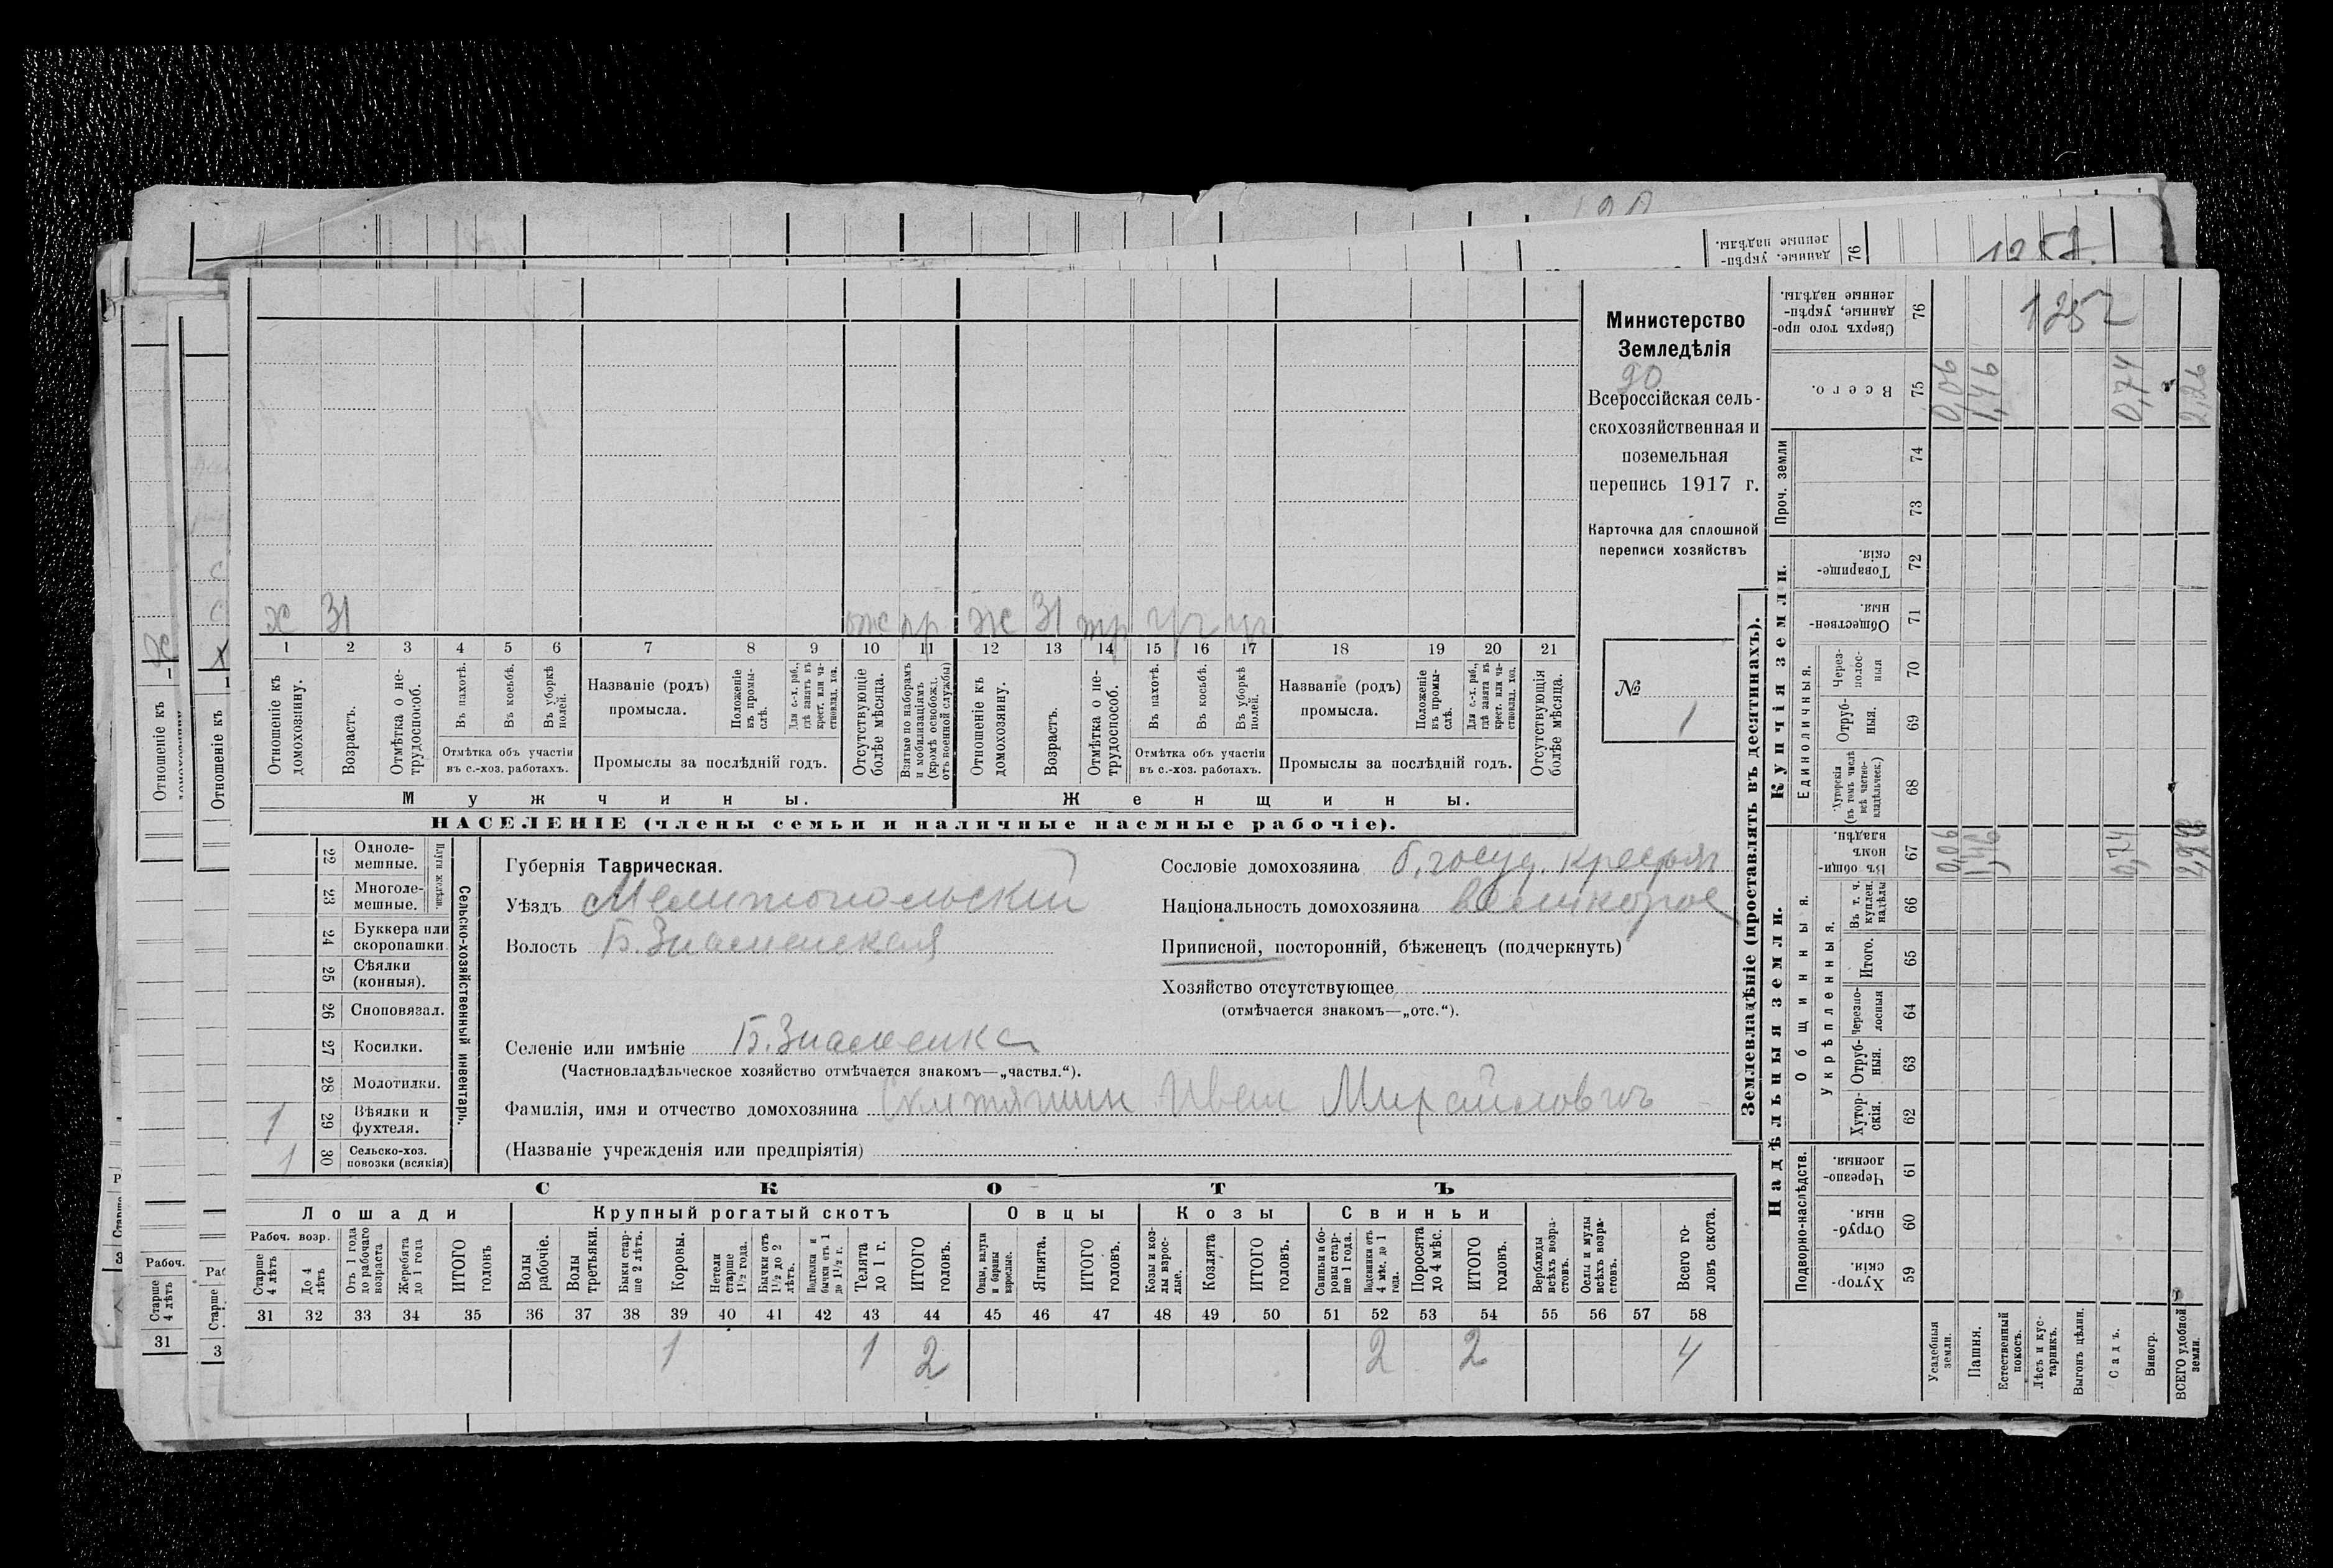 Министерство
Земледѣлія
20
Всероссійская сель-
скохозяйственная и
поземельная
перепись 1917 г.
Карточка для сплошной
переписи хозяйствъ
№ 1
х 31 отс пр ж 31 тр
1 2 3 4 5 6 7 8 9 10 11 12 13 14 15 16 17 18 19 20 21
Отношеніе къ домохозяину.
Возрастъ.
Отмѣтка о не-трудоспособ.
Въ пахотѣ.
Въ косьбѣ.
Въ уборкѣ полей.
Отмѣтка объ участіи
въ с.-хоз. работахъ.
Названіе (родъ)
промысла.
Положеніе въ промы-слѣ.
Для с.-х. раб., гдѣ занятъ въ крест. или ча-стновлад. хоз.
Промыслы за послѣдній годъ.
Отсутствующіе болѣе мѣсяца.
Взятые по наборамъ и мобилизаціямъ (кромѣ освобожд. отъ военной службы)
Отношеніе къ домохозяину.
Возрастъ.
Отмѣтка о не-трудоспособ.
Въ пахотѣ.
Въ косьбѣ.
Въ уборкѣ полей.
Отмѣтка объ участіи
въ с.-хоз. работахъ.
Названіе (родъ)
промысла.
Положеніе въ промы-слѣ.
Для с.-х. раб., гдѣ занята въ крест. или ча-стновлад. хоз.
Промыслы за послѣдній годъ.
Отсутствующія болѣе мѣсяца.
Мужчины. Женщины.
НАСЕЛЕНІЕ (члены семьи и наличные наемные рабочіе).
Сельско-хозяйственный инвентарь.
22 Одноле-мешные.
23 Многоле-мешные.
24 Буккера или скоропашки.
25 Сѣялки (конныя).
26 Сноповязал.
27 Косилки.
28 Молотилки.
1 29 Вѣялки и фухтеля.
1 30 Сельско-хоз. повозки (всякія)
Губернія Таврическая.
Уѣздъ Мелитопольскій
Волость Б. Знаменская
Селеніе или имѣніе Б. Знаменка
(Частновладѣльческое хозяйство отмѣчается знакомъ—„частвл.“).
Фамилія, имя и отчество домохозяина Иван Михайловичъ
(Названіе учрежденія или предпріятія)
Сословіе домохозяина б. госуд. крестьян
Національность домохозяина великорос
Приписной, посторонній, бѣженецъ (подчеркнуть)
Хозяйство отсутствующее
(отмѣчается знакомъ—„отс.“).
СКОТЪ
Лошади Крупный рогатый скотъ Овцы Козы Свиньи
Рабоч. возр.
Старше 4 лѣтъ
До 4 лѣтъ
Отъ 1 года до рабочаго возраста
Жеребята до 1 года
ИТОГО головъ
Волы рабочіе.
Волы третьяки.
Быки стар-ше 2 лѣтъ.
Коровы.
Нетели старше 1½ года.
Бычки отъ 1½ до 2 лѣтъ.
Подтелки и бычки отъ 1 до 1½ г.
Телята до 1 г.
ИТОГО головъ.
Овцы, валухи и бараны взрослые.
Ягнята.
ИТОГО головъ.
Козы и коз-лы взрос-лые.
Козлята
ИТОГО головъ.
Свиньи и бо-ровы стар-ше 1 года.
Подсвинки отъ 4 мѣс. до 1 года.
Поросята до 4 мѣс.
ИТОГО головъ.
Верблюды всѣхъ возра-стовъ.
Ослы и мулы всѣхъ возра-стовъ.
Всего го-ловъ скота.
31 32 33 34 35 36 37 38 39 40 41 42 43 44 45 46 47 48 49 50 51 52 53 54 55 56 57 58
1 1 2 2 2 4
Землевладѣніе (проставлять въ десятинахъ).
Надѣльныя земли. Купчія земли. Проч. земли
Подворно-наслѣдств.
Общинныя.
Укрѣпленныя.
Единоличныя.
Хутор-скія. 59
Отруб-ныя. 60
Черезпо-лосныя. 61
Хутор-скія. 62
Отруб-ныя. 63
Черезпо-лосныя 64
Итого. 65
Въ т. ч. куплен. надѣлы 66
Въ общин-номъ владѣн. 67
Хуторскія (въ томъ числѣ всѣ частно-владѣльческ.) 68
Отруб-ныя. 69
Через-полос-ныя 70
Обществен-ныя. 71
Товарище-скія. 72
73 74
Всего. 75
Сверхъ того про-данные, укрѣп-ленные надѣлы. 76
1257
Усадебныя земли. 0,06 0,06
Пашня. 1,46 1,46
Естественный покосъ.
Лѣсъ и кус-тарникъ.
Выгонъ цѣлин.
Садъ. 0,74 0,74
Виногр.
ВСЕГО удобной земли. 2,26